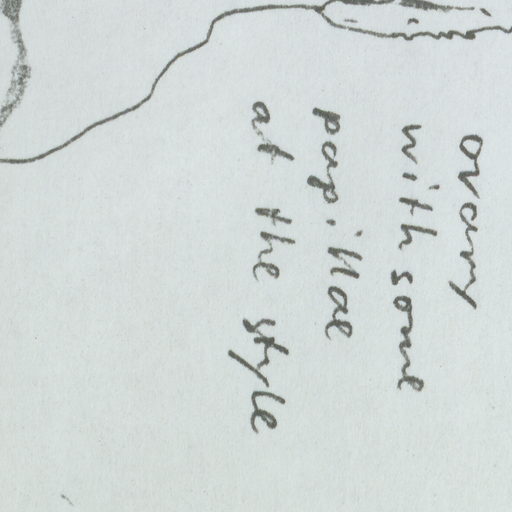 ovary
with some
papillae
at the style